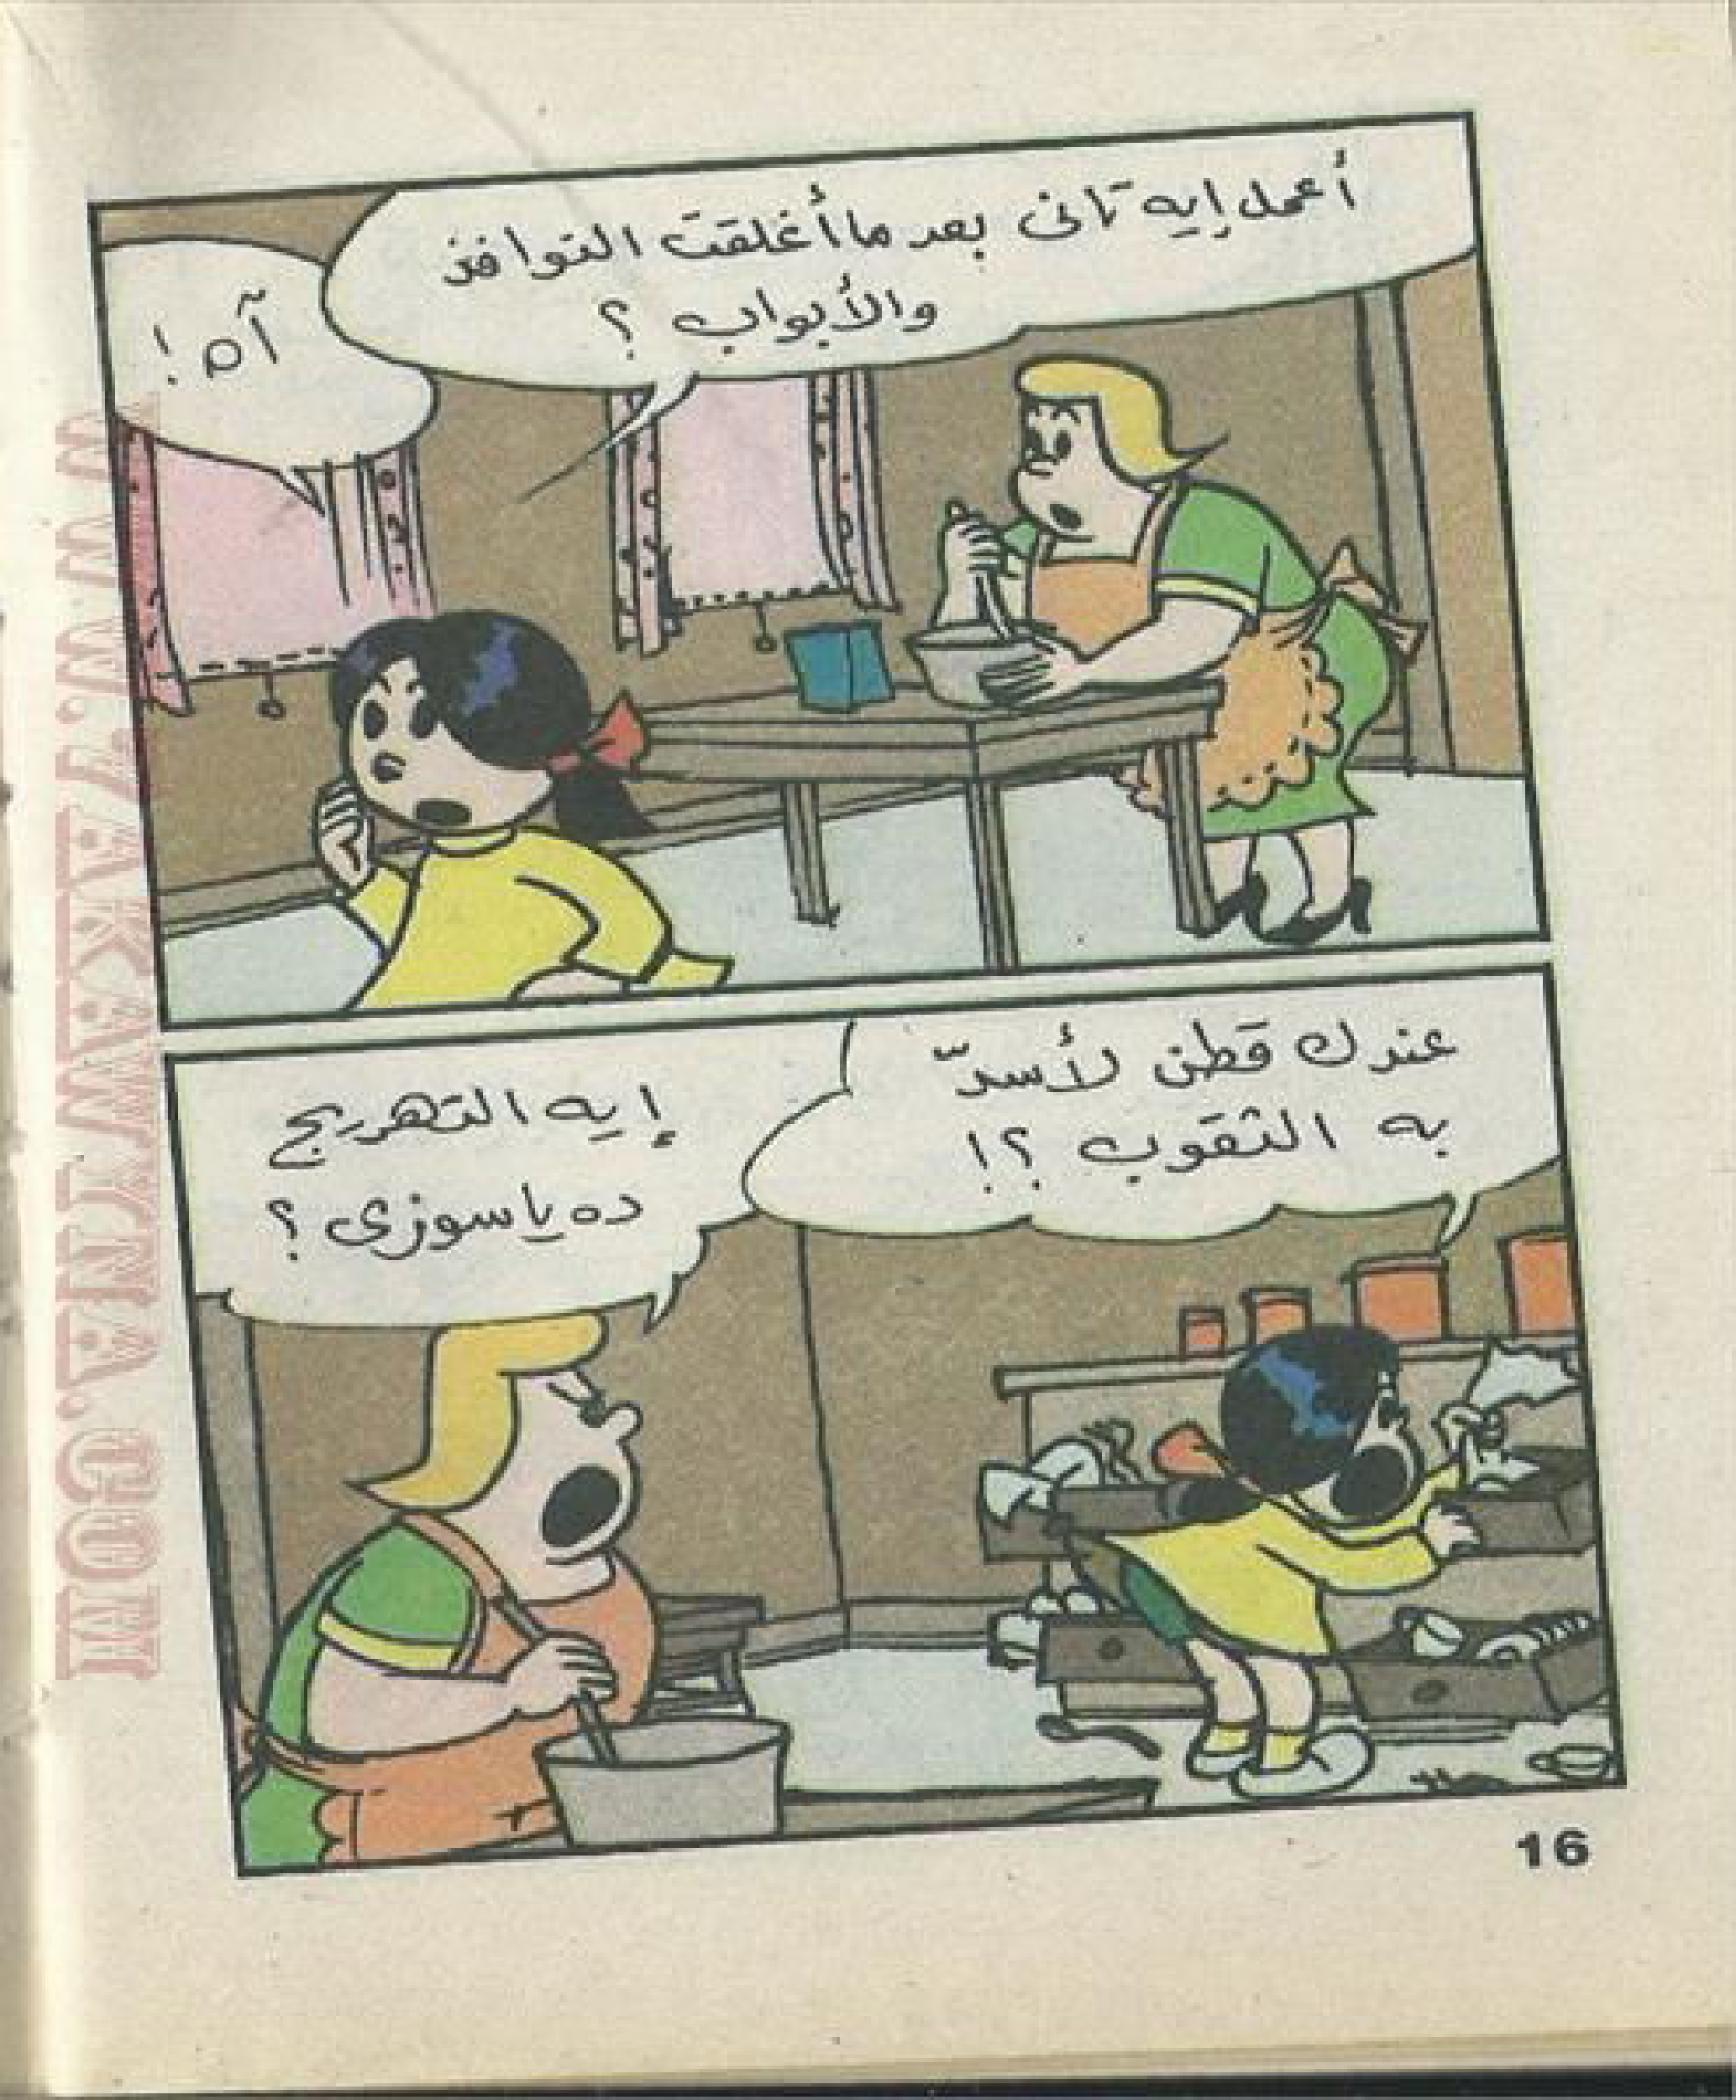 أعمل إيه تانى بعد ما أغلقت النوافذ
والأبواب ؟
آه !
عندك قطن لأسدّ
به الثقوب ؟!
إيه التهريج
ده يا سوزى ؟
16